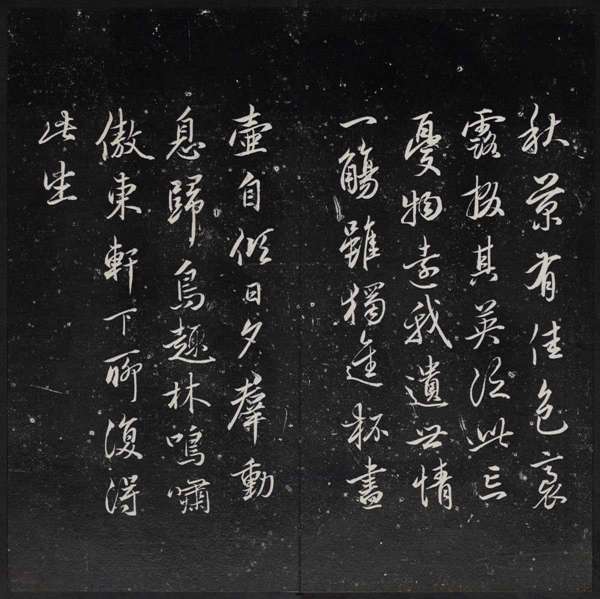 秋菊有佳色裛
露掇其英泛此忘
憂物遠我遺世情
一觴雖獨進杯盡
壺自傾日夕羣動
息歸鳥趨林鳴嘯
傲東軒下聊復得
此生